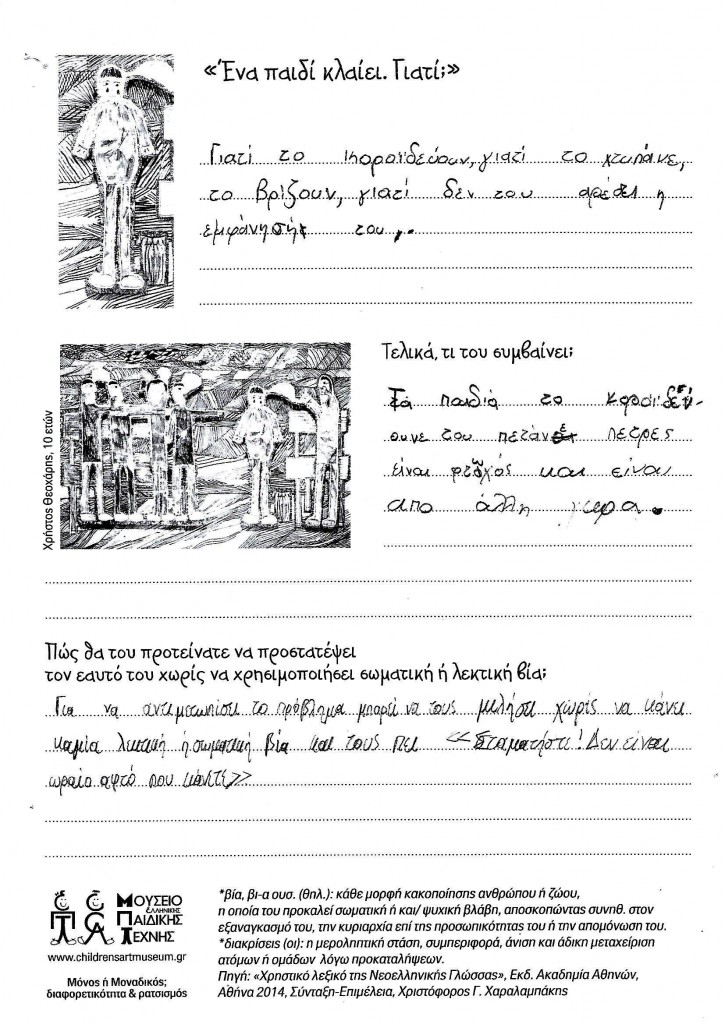 «Ένα παιδί κλαίει. Γιατί;»
Γιατί το κοροϊδεύουν, γιατί το χτυπάνε,
το βρίζουν, γιατί δεν του αρέσει η
εμφάνησή του.
Τελικά, τι του συμβαίνει;
Τα παιδιά το κοροϊδεύ-
ουνε του πετάνε πέτρες
είναι φτωχός και είναι
απο άλλη χωρα.
Χρήστος Θεοχάρης, 10 ετών
Πώς θα του προτείνατε να προστατέψει
τον εαυτό του χωρίς να χρησιμοποιήσει σωματική ή λεκτική βία;
Για να αντιμετωπίσει το πρόβλημα μπορεί να τους μιλήσει χωρίς να κάνει
καμία λεκτική ή σωματική βία και τους πει «Σταματήστε! Δεν είναι
ωραίο αφτό που κάνετε»
ΜΟΥΣΕΙΟ
ΕΛΛΗΝΙΚΗΣ
ΠΑΙΔΙΚΗΣ
ΤΕΧΝΗΣ
www.childrensartmuseum.gr
Μόνος ή Μοναδικός;
διαφορετικότητα & ρατσισμός
*βία, βι-α ουσ. (θηλ.): κάθε μορφή κακοποίησης ανθρώπου ή ζώου,
η οποία του προκαλεί σωματική ή και/ ψυχική βλάβη, αποσκοπώντας συνηθ. στον
εξαναγκασμό του, την κυριαρχία επί της προσωπικότητας του ή την απομόνωση του.
*διακρίσεις (οι): η μεροληπτική στάση, συμπεριφορά, άνιση και άδικη μεταχείριση
ατόμων ή ομάδων λόγω προκαταλήψεων.
Πηγή: «Χρηστικό λεξικό της Νεοελληνικής Γλώσσας», Εκδ. Ακαδημία Αθηνών,
Αθήνα 2014, Σύνταξη-Επιμέλεια, Χριστόφορος Γ. Χαραλαμπάκης